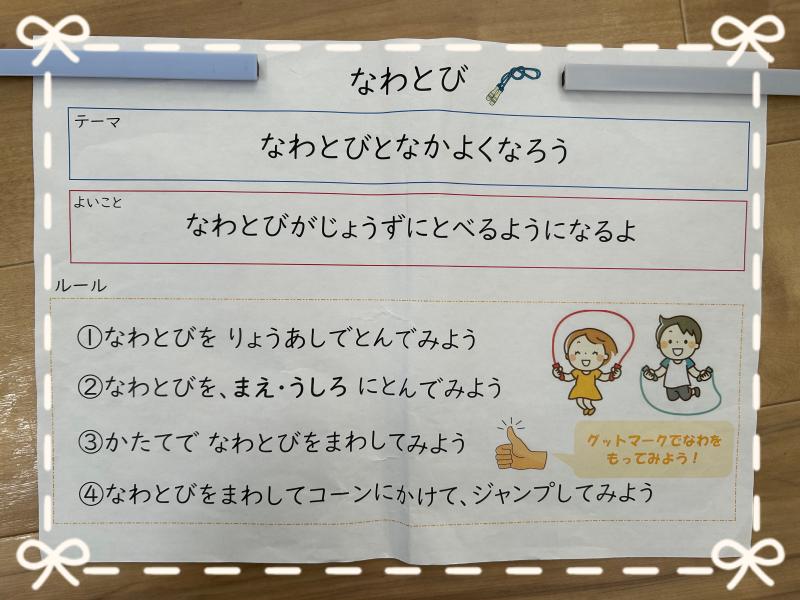 なわとび
テーマ
なわとびとなかよくなろう
よいこと
なわとびがじょうずにとべるようになるよ
ルール
①なわとびを りょうあしでとんでみよう
②なわとびを、まえ・うしろ にとんでみよう
③かたてで なわとびをまわしてみよう
グットマークでなわを
もってみよう！
④なわとびをまわしてコーンにかけて、ジャンプしてみよう